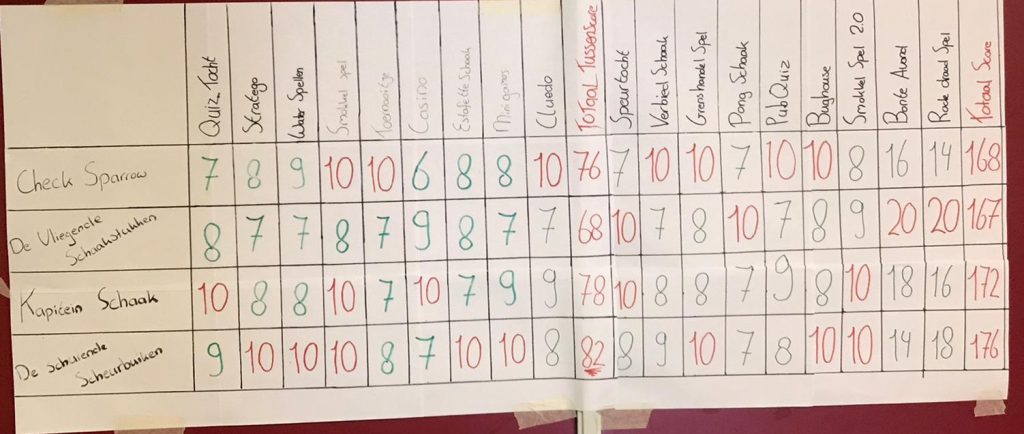 Quiz Tocht Stratego Water Spellen Smokkel Spel Toernooitje Casino Estafette Schaak Minigames Cluedo Totaal Tussenscore Speurtocht Verbied Schaak Grenshandel Spel Pong Schaak PubQuiz Bughouse Smokkel Spel 2.0 Bonte Avond Rode draad Spel Totaal Score
Check Sparrow 7 8 9 10 10 6 8 8 10 76 7 10 10 7 10 10 8 16 14 168
De Vliegende
Schaakstukken 8 7 7 8 7 9 8 7 7 68 10 7 8 10 7 8 9 20 20 167
Kapitein Schaak 10 8 8 10 7 10 7 9 9 78 10 8 8 7 9 8 10 18 16 172
De
Scheurbuiken 9 10 10 10 8 7 10 10 8 82 8 9 10 7 8 10 10 14 18 176